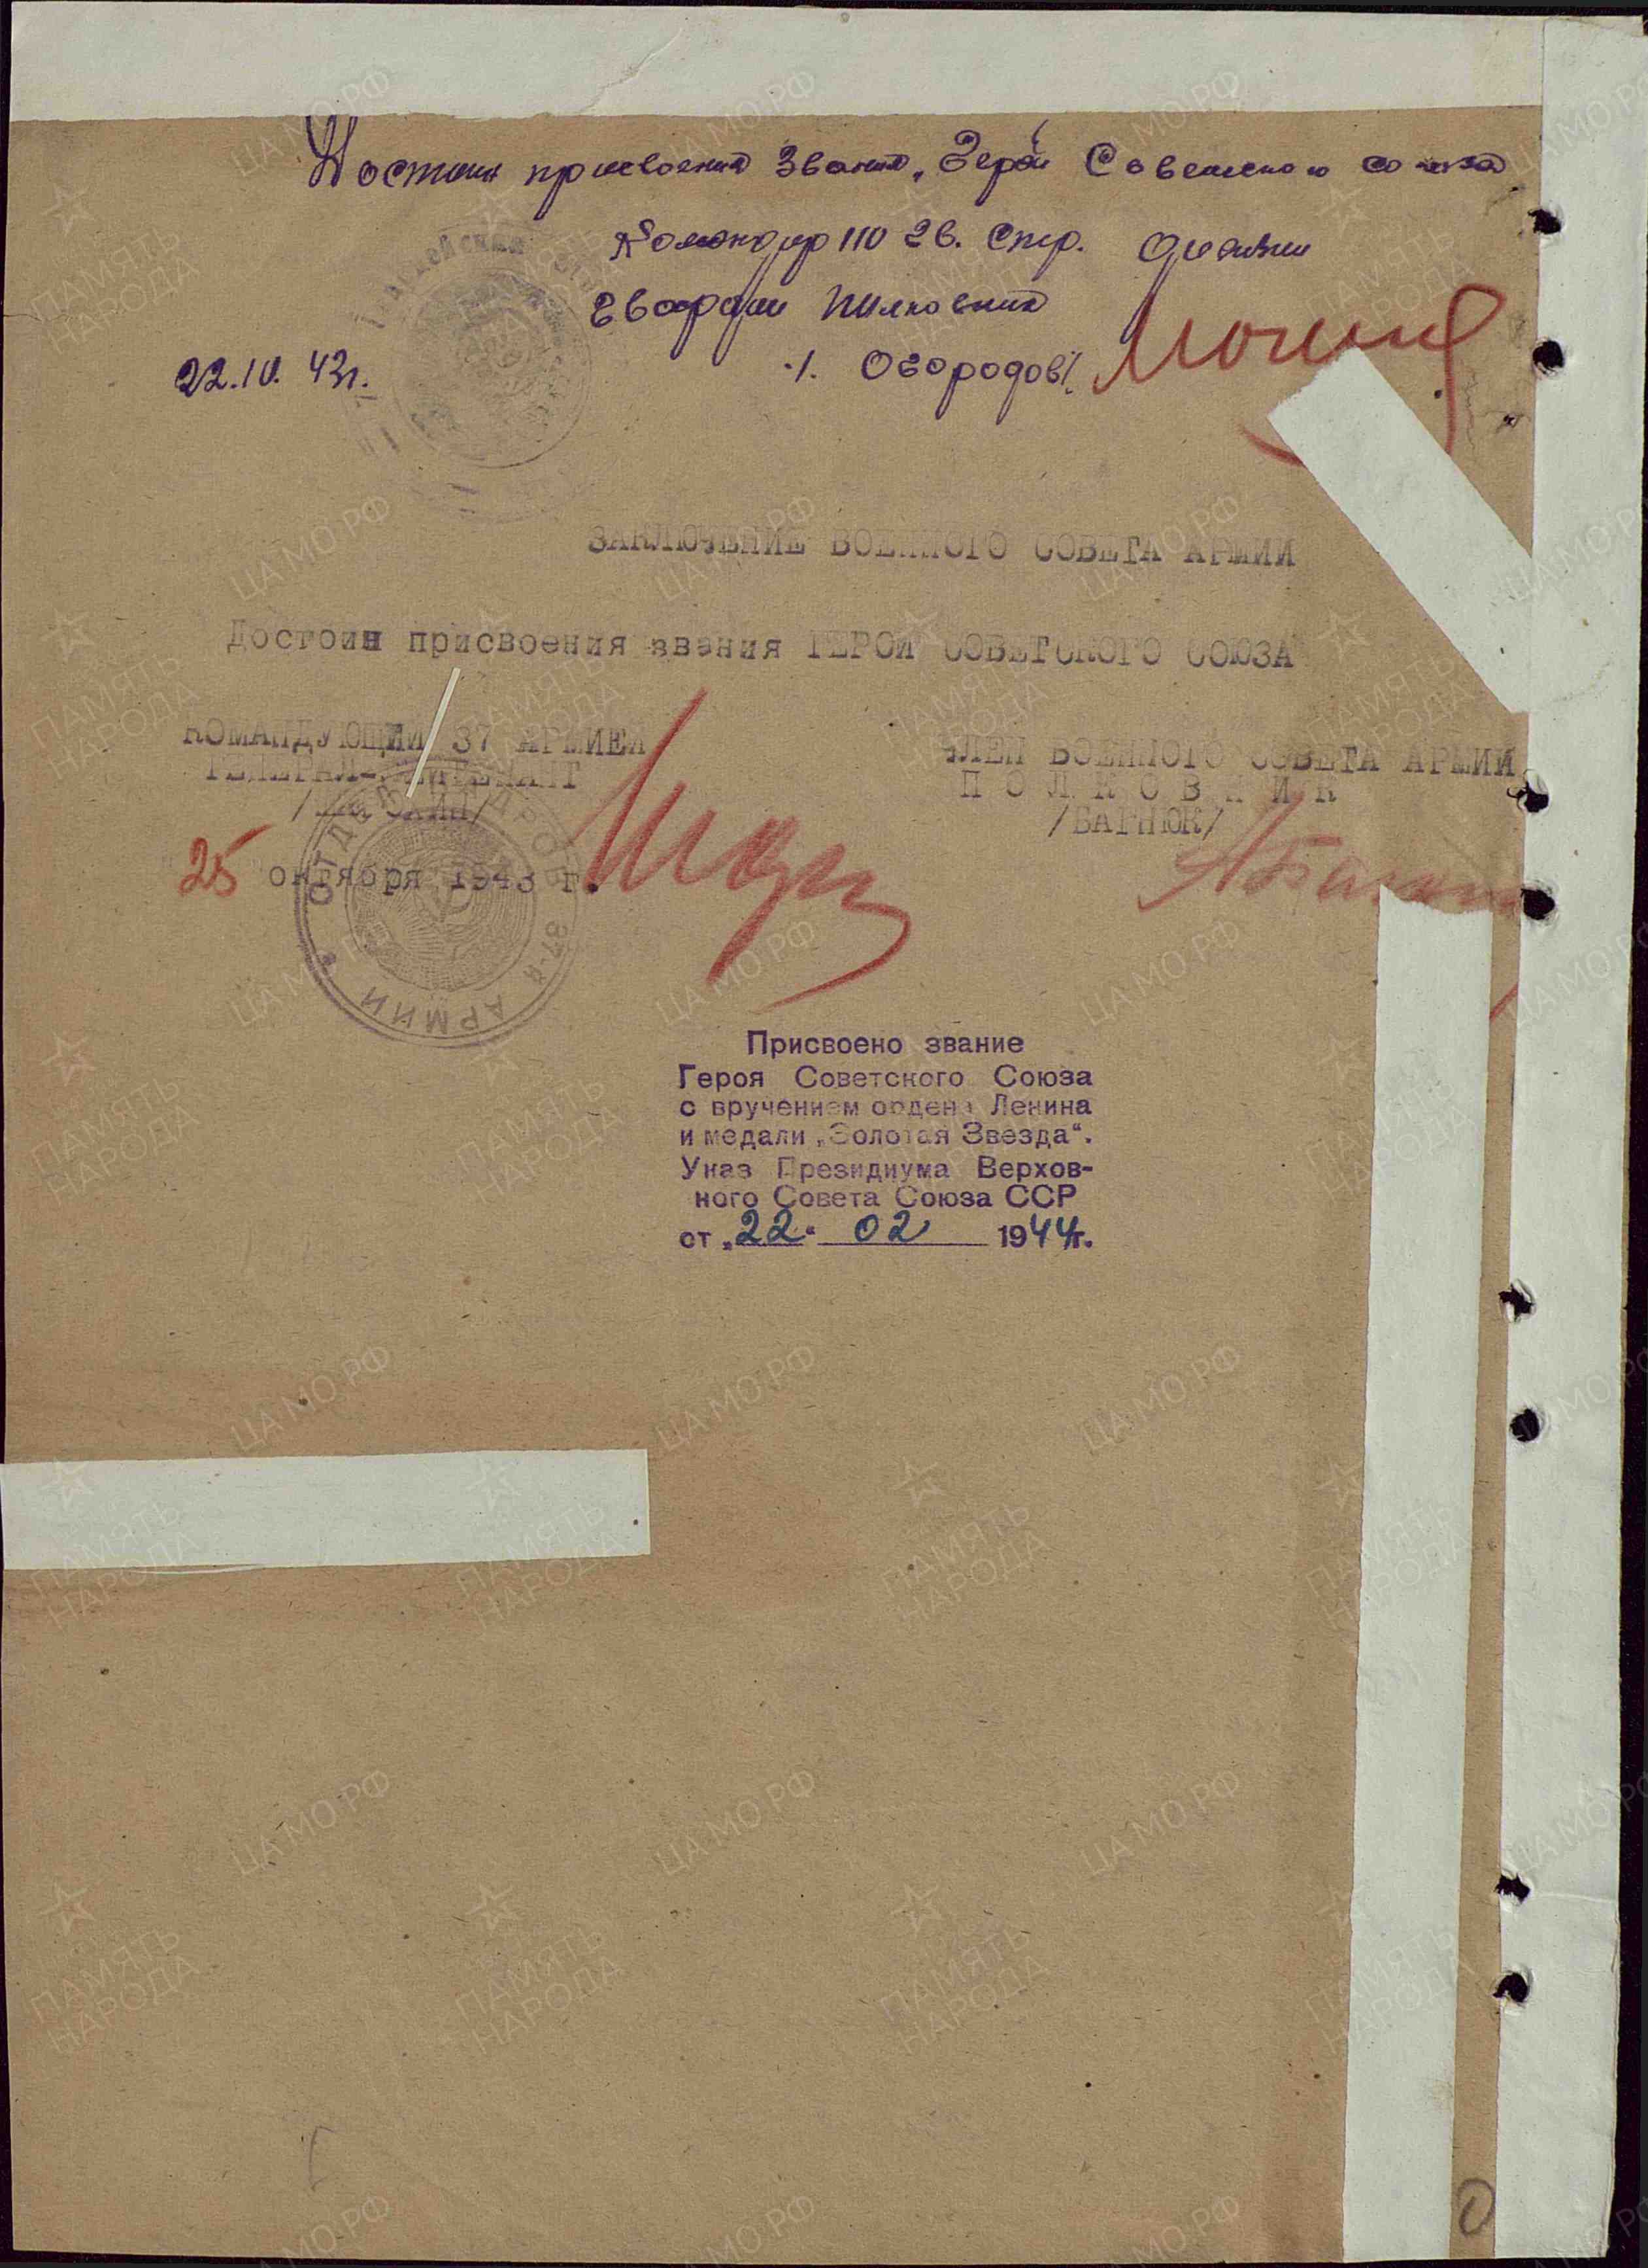 Достоин присвоения Звания „Герой Советского союза
Командир 110 гв. Стр. дивизии
Гвардии полковник
/. Огородов/.
22.10. 43г.
ЗАКЛЮЧЕНИЕ ВОЕННОГО СОВЕТА АРМИИ
Достоин присвоения звания ГЕРОЙ СОВЕТСКОГО СОЮЗА
КОМАНДУЮЩИЙ 37 АРМИЕЙ
ГЕНЕРАЛ-ЛЕЙТЕНАНТ
ЧЛЕН ВОЕННОГО СОВЕТА АРМИИ
ПОЛКОВНИК
/БАГНЮК/
"25" октября 1943 г.
ОТДЕЛ КАДРОВ 37-й АРМИИ
Присвоено звание
Героя Советского Союза
с вручением ордена Ленина
и медали „Золотая Звезда“.
Указ Президиума Верхов-
ного Совета Союза ССР
от „22“ 02 1944г.
ПАМЯТЬ НАРОДА
ЦА МО РФ